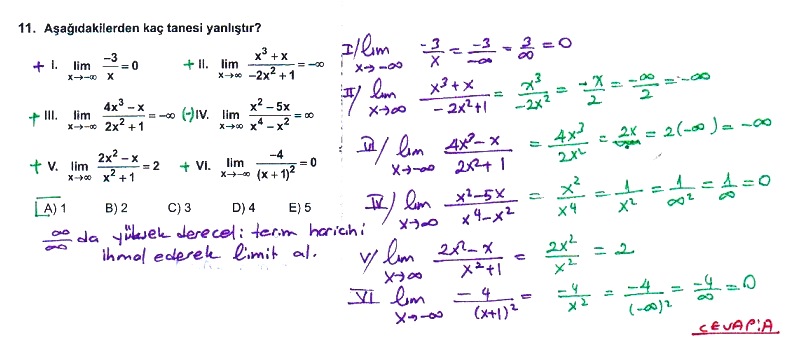 11. Aşağıdakilerden kaç tanesi yanlıştır?
+ I. lim x→-∞ -3/x = 0 + II. lim x→∞ x³+x/-2x²+1 = -∞
+ III. lim x→-∞ 4x³-x/2x²+1 = -∞ (-) IV. lim x→∞ x²-5x/x⁴-x² = ∞
+ V. lim x→∞ 2x²-x/x²+1 = 2 + VI. lim x→-∞ -4/(x+1)² = 0
A) 1 B) 2 C) 3 D) 4 E) 5
∞/∞ da yüksek dereceli terim haricini
ihmal ederek limit al.
I/ lim x→-∞ -3/x = -3/-∞ = 3/∞ = 0
II/ lim x→∞ x³+x/-2x²+1 = x³/-2x² = -x/2 = -∞/2 = -∞
III/ lim x→-∞ 4x³-x/2x²+1 = 4x³/2x² = 2x = 2(-∞) = -∞
IV/ lim x→∞ x²-5x/x⁴-x² = x²/x⁴ = 1/x² = 1/∞² = 1/∞ = 0
V/ lim x→∞ 2x²-x/x²+1 = 2x²/x² = 2
VI lim x→-∞ -4/(x+1)² = -4/x² = -4/(-∞)² = -4/∞ = 0
CEVAP:A